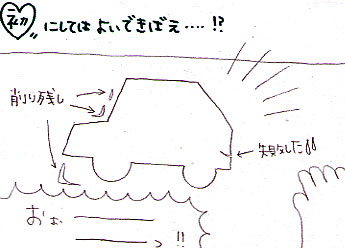 にしてはよいできばえ‥‥!?
削り残し
失敗した
おぉ
!!